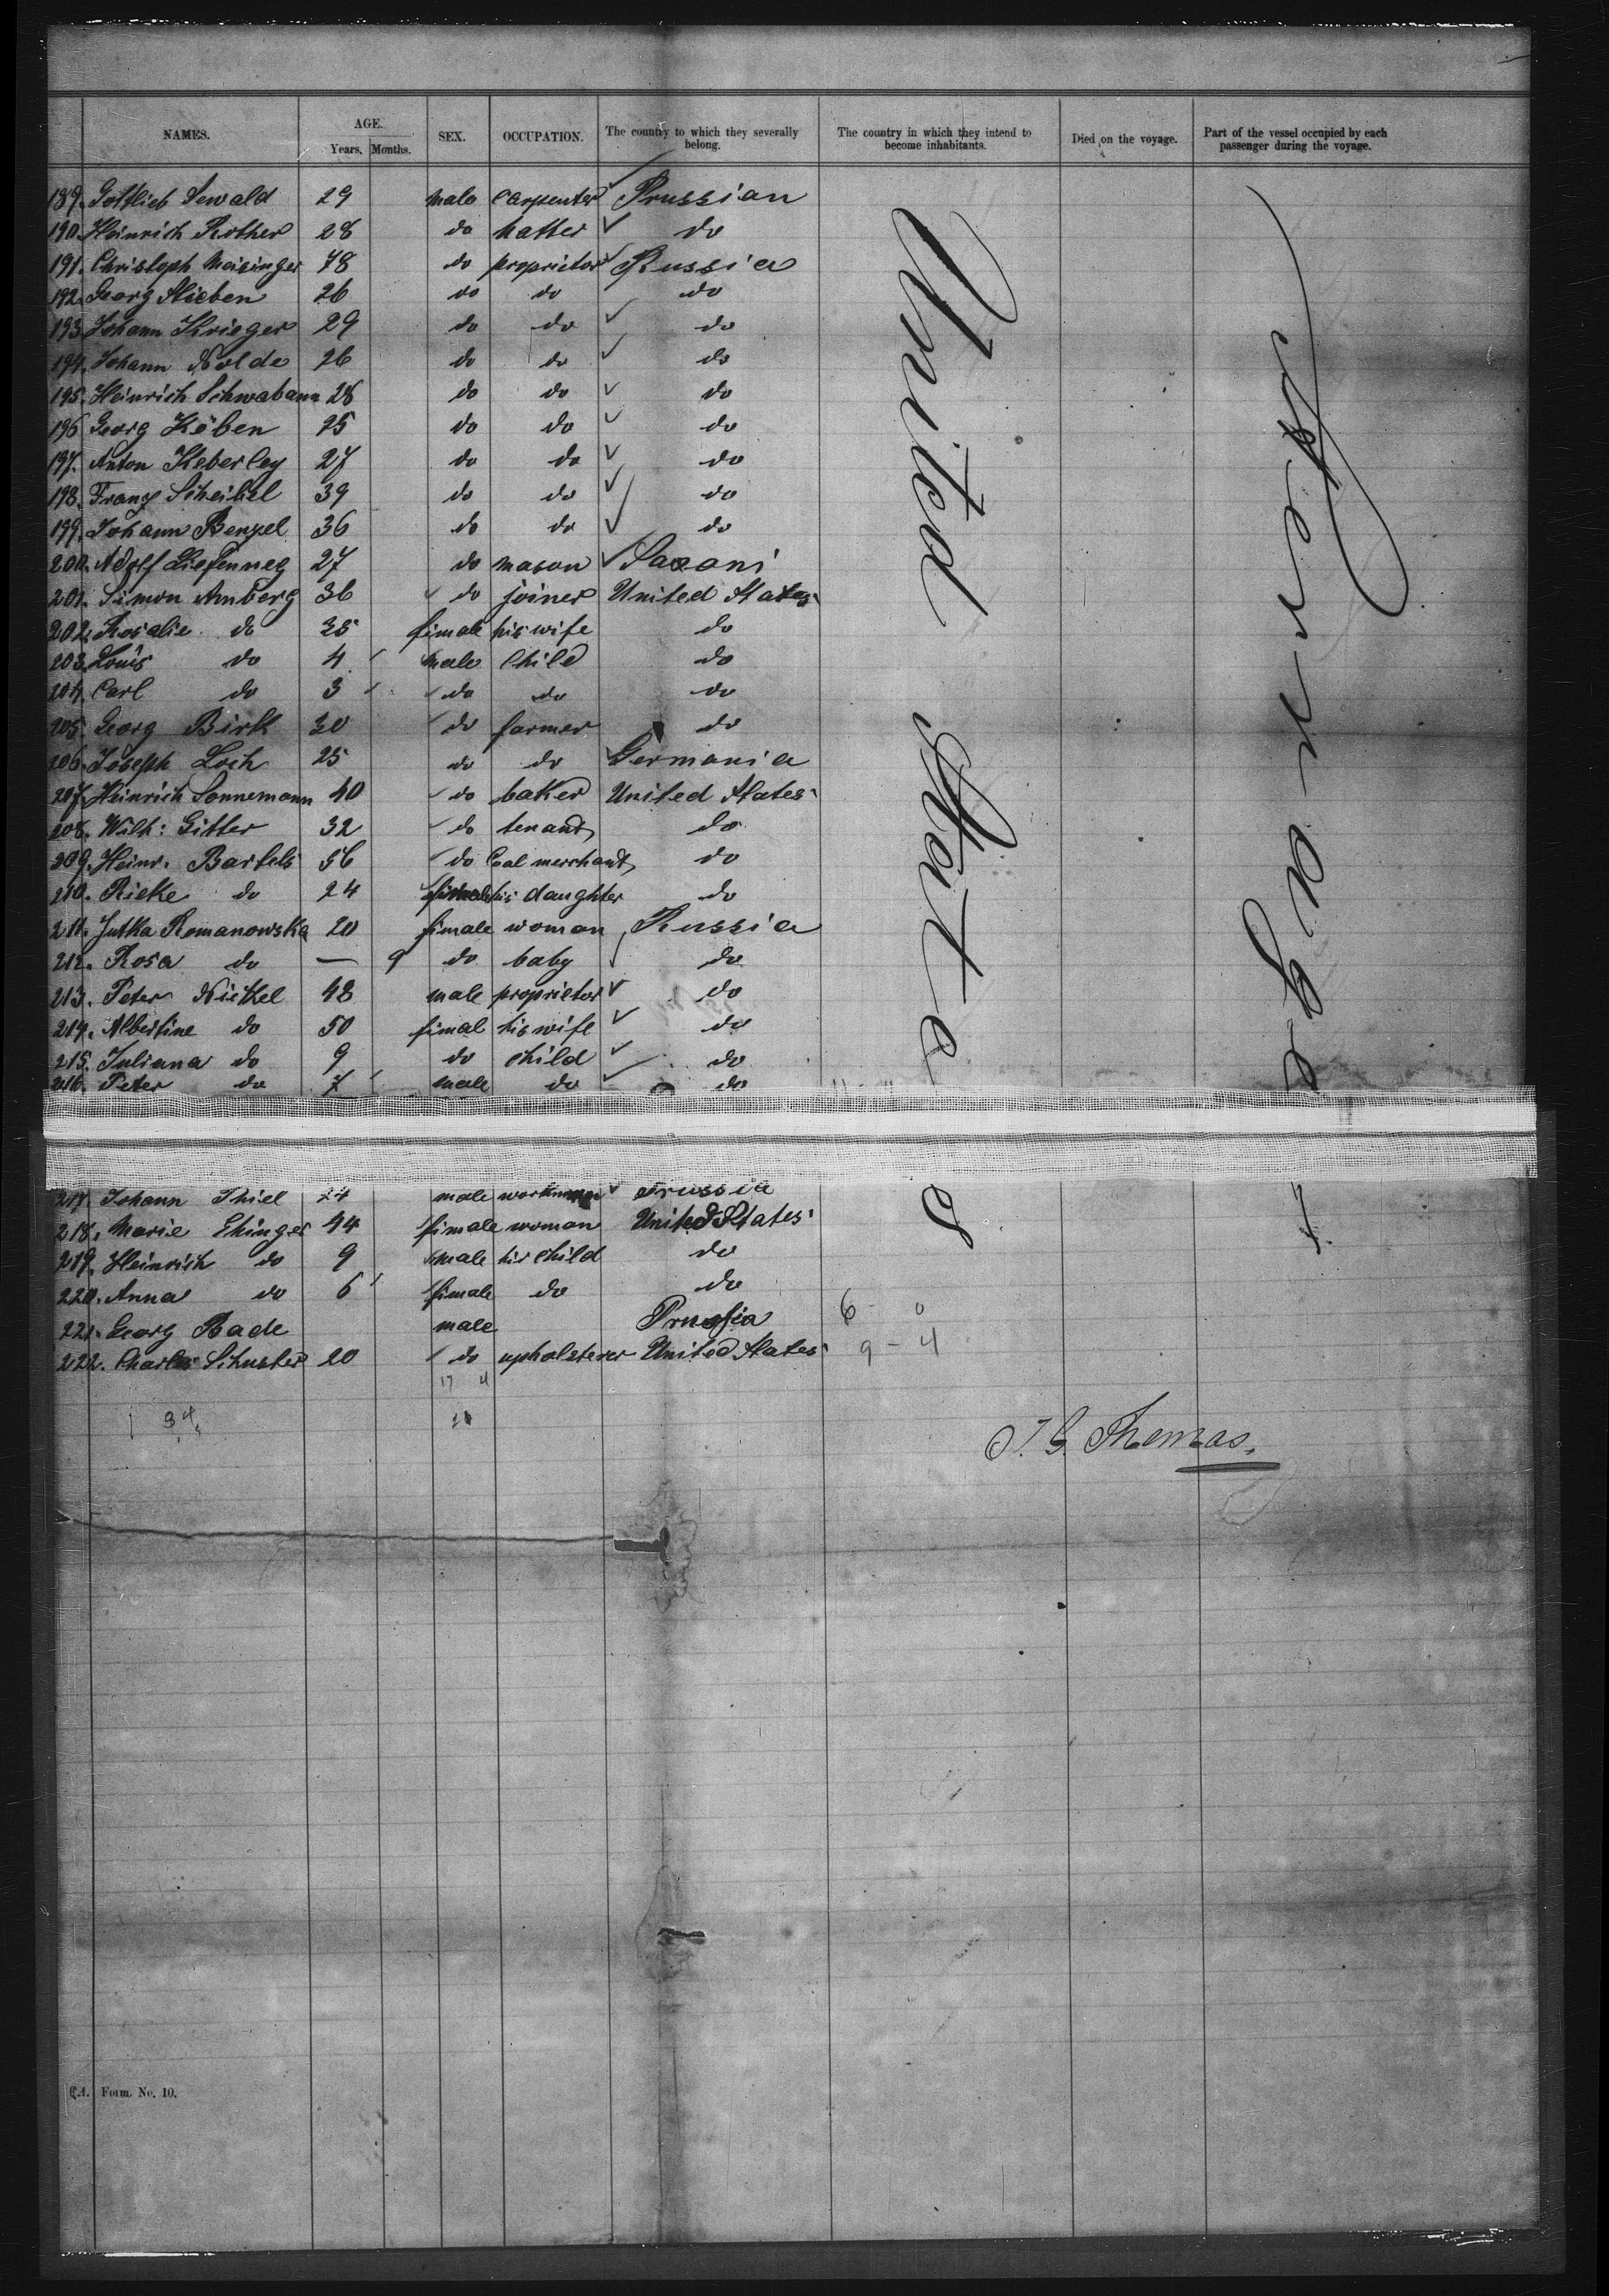 NAMES. AGE. Years. Months. SEX. OCCUPATION. The country to which they severally belong. The country in which they intend to become inhabitants. Died on the voyage. Part of the vessel occupied by each passenger during the voyage.
189. Gottlieb Sewald 29 male carpenter Prussian
190. Heinrich Rother 28 do hatter do
191. Christoph Meisinger 48 do proprietor Russia
192. Georg Stieben 26 do do do
193. Johann Krieger 29 do do do
194. Johann Nolde 26 do do do
195. Heinrich Schwabann 28 do do do
196 Georg Köben 25 do do do
197. Anton Keberley 27 do do do
198. Franz Scheibel 39 do do do
199. Johann Benzel 36 do do do
200. Adolf Liefenneg 27 do mason Saxoni
201. Simon Amberg 36 do joiner United States
202. Rosalie do 35 fimale his wife do
203. Louis do 4 male child do
204. Carl do 3 do do do
205. Georg Birk 30 do farmer do
206. Joseph Loch 25 do do Germania
207. Heinrich Sonnemann 40 do baker United States
208. Wilh: Gitter 32 do tenant do
209. Heinr. Bartels 56 do Coal merchant do
210. Rieke do 24 his daughter do
211. Jutka Romanowska 20 fimale woman Russia
212. Rosa do — 9 do baby do
213. Peter Nickel 48 male proprietor do
214. Albertine do 50 fimal his wife do
215. Juliana do 9 do child do
216. Peter do 7 male do do
217. Johann Thiel 24 male workman Prussia
218. Marie Ehinger 44 fimale woman United States
219. Heinrich do 9 male hir child do
220. Anna do 6 fimale do do
221. Georg Rade male Prussia 6 - 0
222. Charles Schuster 20 do upholsterer United States 9 - 4
United States
Steerage
17 4
34
J. G. Thomas.
Form. No. 10.